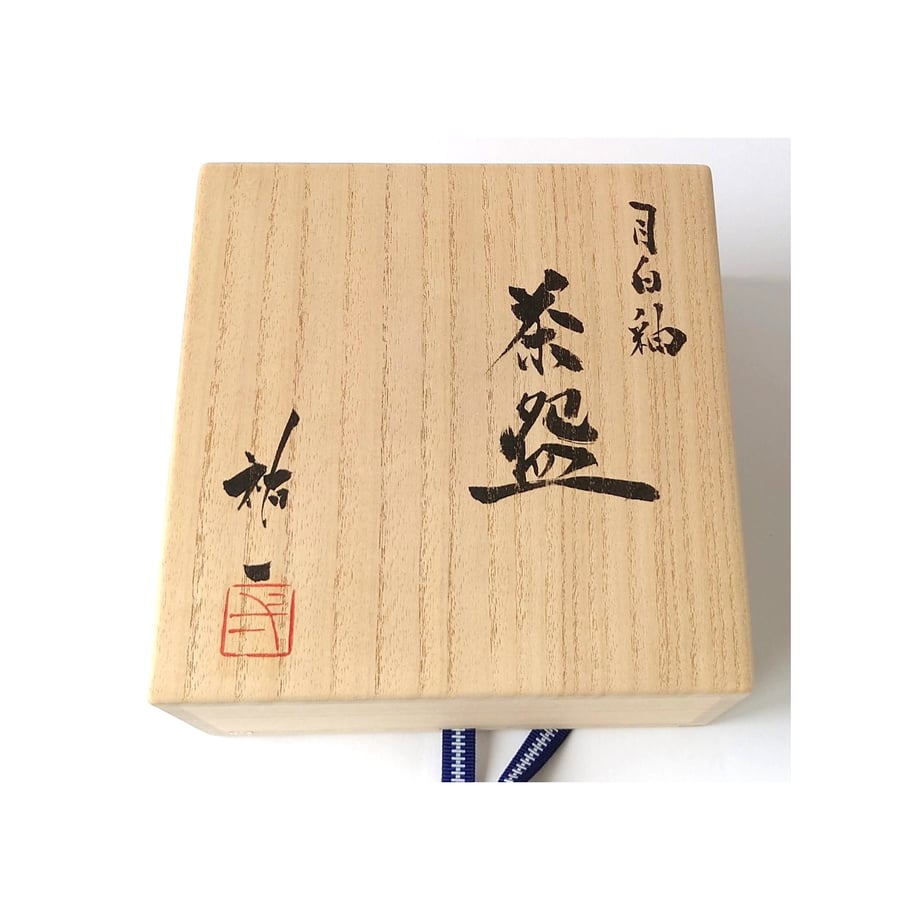 月白釉
茶盌
祐一